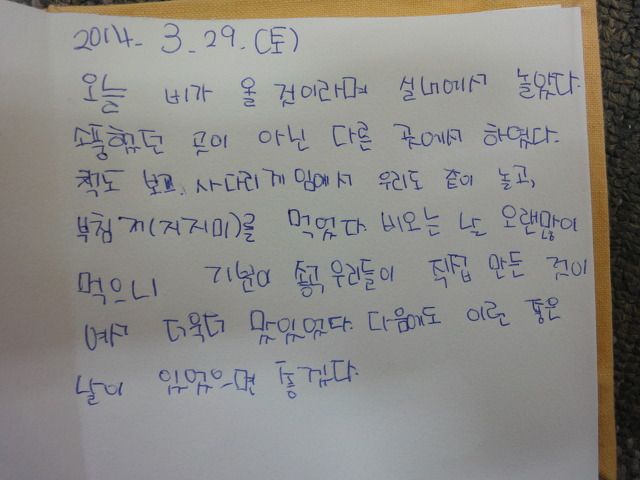 2014. 3. 29. (토)
오늘 비가 올 것이라며 실내에서 놀았다.
소풍했던 곳이 아닌 다른 곳에서 하였다.
책도 보고, 사다리게임에서 우리도 같이 놀고,
부침개(지지미)를 먹었다. 비오는 날 오랜많이
먹으니 기분이 좋고 우리들이 직접 만든 것이
여서 더욱더 맛있었다. 다음에도 이런 좋은
날이 있었으면 좋겠다.